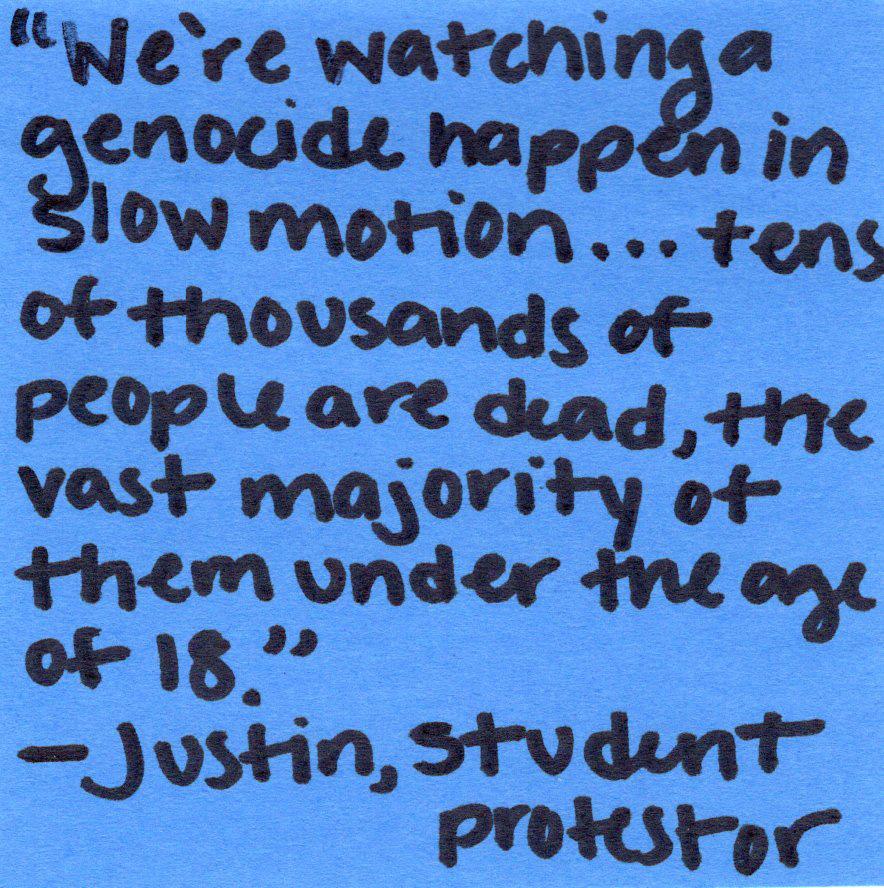 "We're watching a
genocide happen in
slow motion... tens
of thousands of
people are dead, the
vast majority of
them under the age
of 18."
-Justin, student
protestor